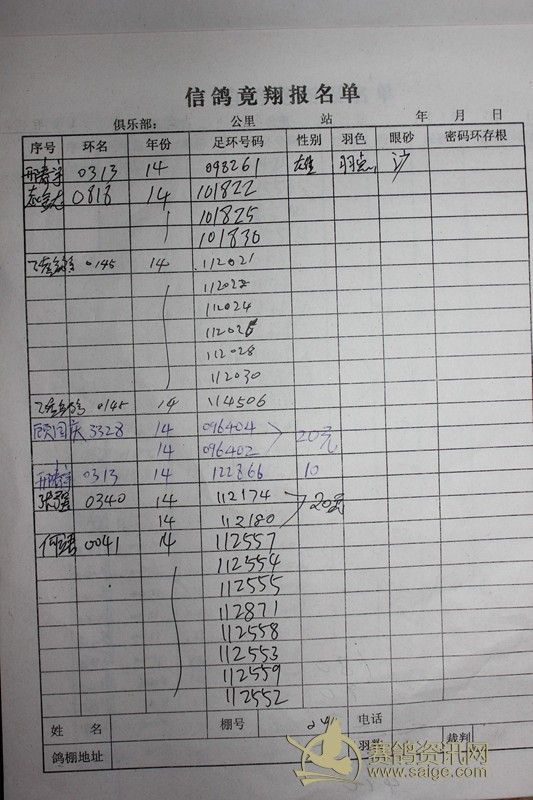 信鸽竟翔报名单
俱乐部: 公里 站 年 月 日
序号 环名 年份 足环号码 性别 羽色 眼砂 密码环存根
0313 14 098261 雄 羽点 沙
0818 14 101822
101825
101830
0145 14 112021
112022
112024
112028
112030
0145 14 114506
顾国庆 3328 14 096404 20元
14 096402
0313 14 122866 10
张强 0340 14 112174 20元
14 112180
0041 14 112557
112554
112555
112871
112558
112553
112559
112552
姓 名 棚号 电话
鸽棚地址 羽数 裁判
赛鸽资讯网
www.saige.com